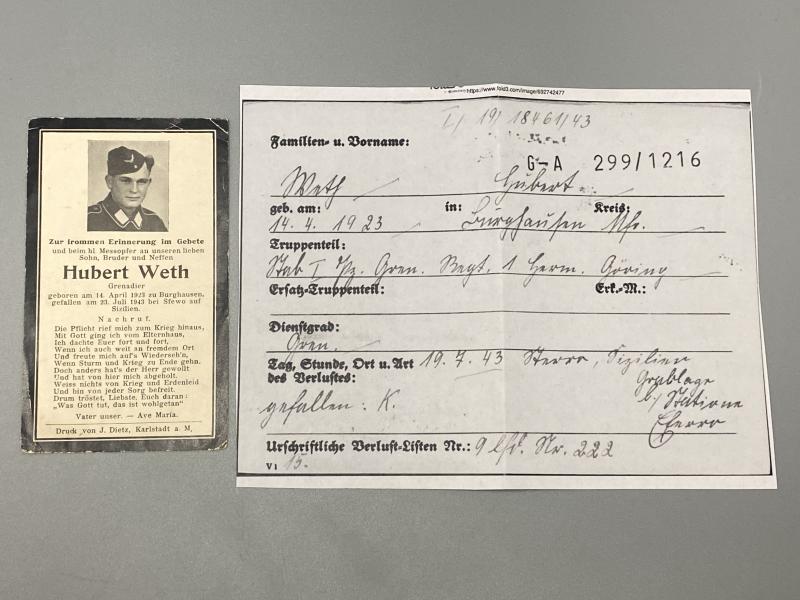 Zur frommen Erinnerung im Gebete
und beim hl. Messopfer an unseren lieben
Sohn, Bruder und Neffen
Hubert Weth
Grenadier
geboren am 14. April 1923 zu Burghausen,
gefallen am 23. Juli 1943 bei Sfewo auf
Sizilien.
Nachruf.
Die Pflicht rief mich zum Krieg hinaus,
Mit Gott ging ich vom Elternhaus,
Ich dachte Euer fort und fort,
Wenn ich auch weit an fremdem Ort
Und freute mich auf's Wiederseh'n,
Wenn Sturm und Krieg zu Ende gehn.
Doch anders hat's der Herr gewollt
Und hat von hier mich abgeholt.
Weiss nichts von Krieg und Erdenleid
Und bin von jeder Sorg befreit.
Drum tröstet, Liebste, Euch daran:
"Was Gott tut, das ist wohlgetan"
Vater unser. — Ave Maria.
Druck von J. Dietz, Karlstadt a. M.
https://www.fold3.com/image/692742477
I/ 19/ 18461/43
Familien- u. Vorname:
G-A 299/1216
Weth Hubert
geb. am: in: Kreis:
14.4.1923 Burghausen Ufr.
Truppenteil:
Stab I Pz. Gren. Regt. 1 Herm. Göring
Ersatz-Truppenteil: Erk.-M.:
Dienstgrad:
Gren.
Tag, Stunde, Ort u. Art 19.7.43 Sterro, Sizilien
des Verlustes:
Grablage
b./ Stazione
Sferro
gefallen: K.
Urschriftliche Verlust-Listen Nr.: 9 lfd. Nr. 222
VI 15.